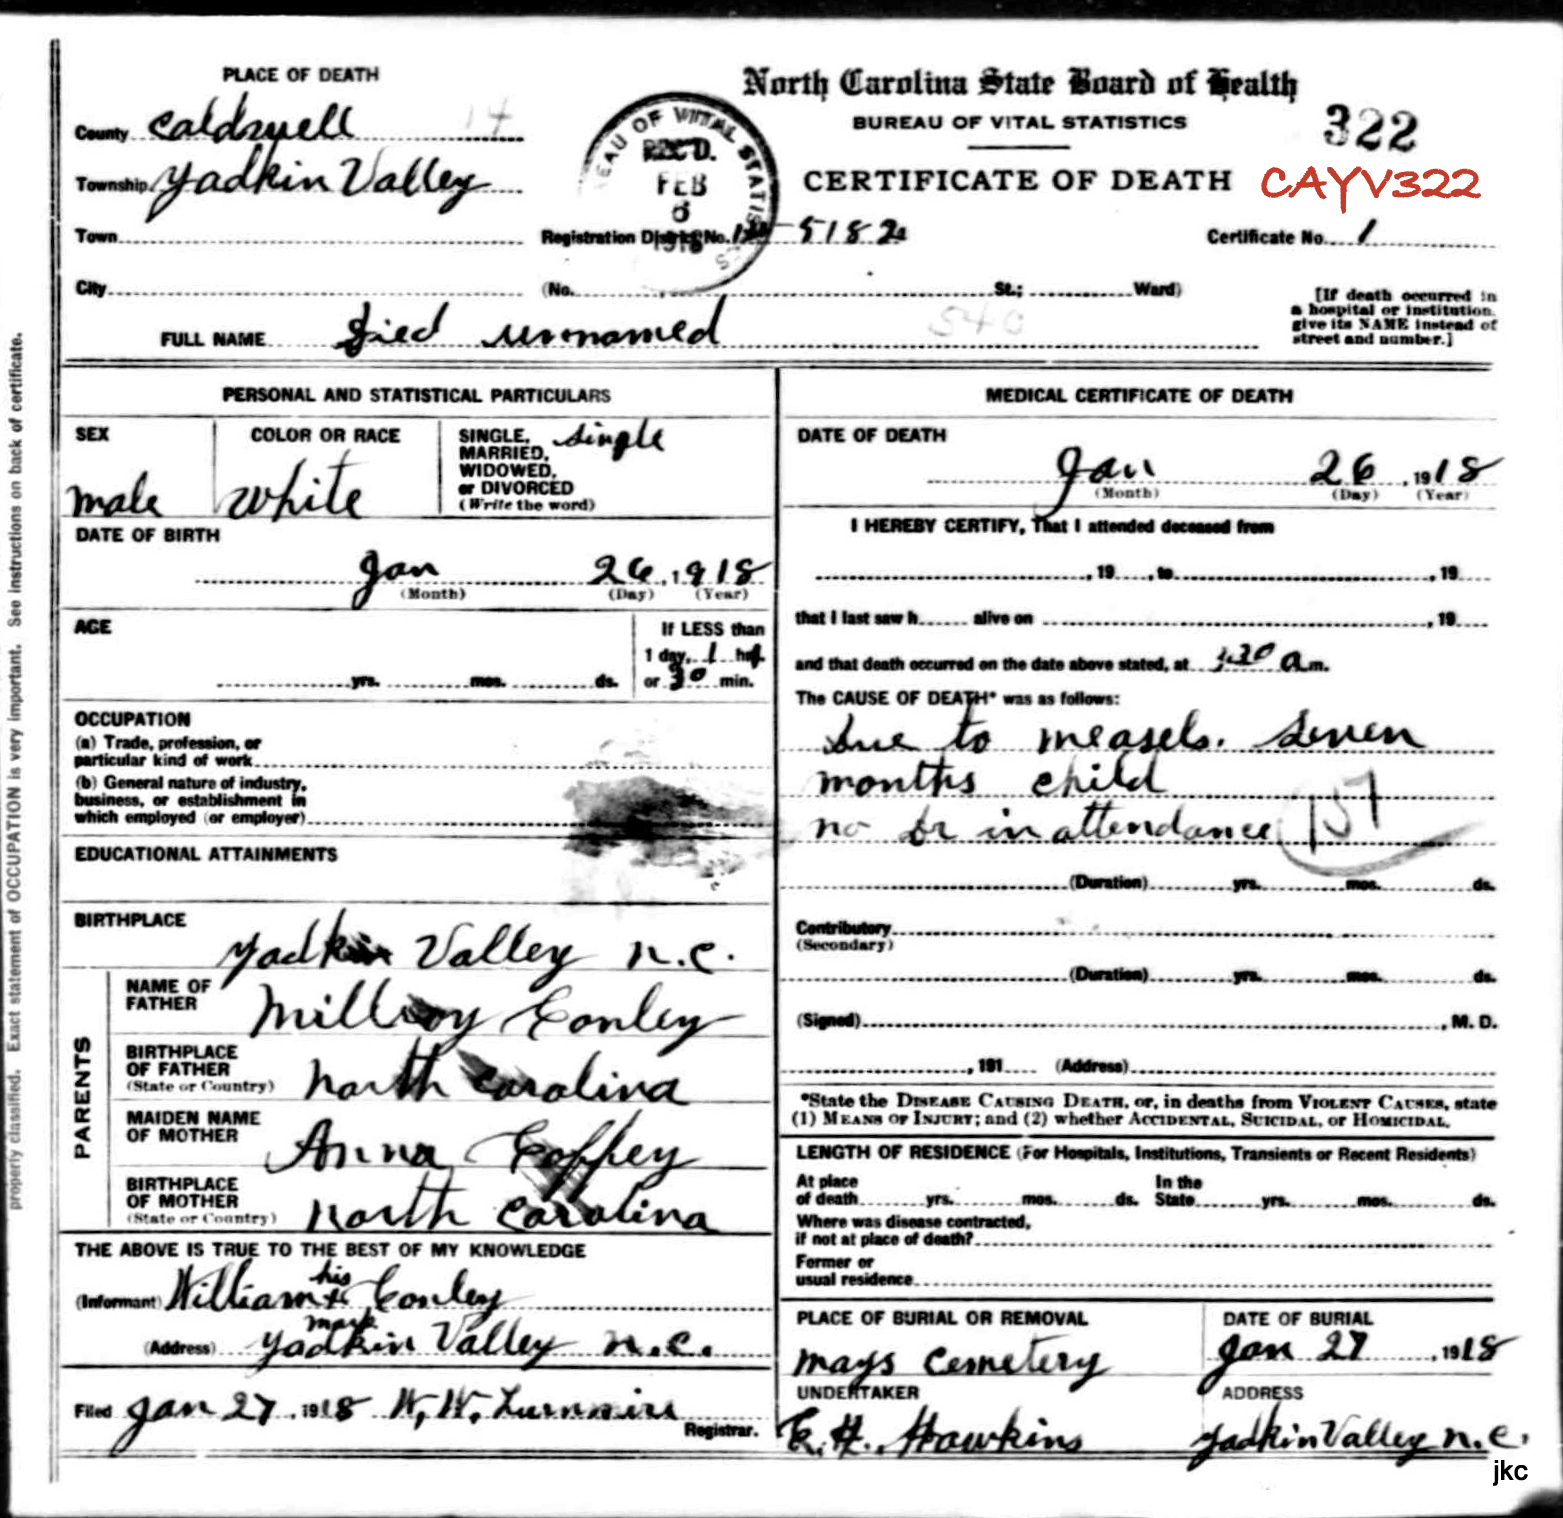 PLACE OF DEATH
County Caldwell 14
Township Yadkin Valley
Town
City
North Carolina State Board of Health
BUREAU OF VITAL STATISTICS
CERTIFICATE OF DEATH
322
CAYV322
BUREAU OF VITAL STATISTICS
REC'D.
FEB
6
1918
Registration District No. 5182
Certificate No. 1
(No. St.; Ward)
[If death occurred in
a hospital or institution,
give its NAME instead of
street and number.]
FULL NAME Died unnamed
540
PERSONAL AND STATISTICAL PARTICULARS
SEX
male
COLOR OR RACE
white
SINGLE, single
MARRIED,
WIDOWED,
or DIVORCED
(Write the word)
DATE OF BIRTH
Jan 26, 1918
(Month) (Day) (Year)
AGE
yrs. mos. ds.
If LESS than
1 day, 1 hr.
or 30 min.
OCCUPATION
(a) Trade, profession, or
particular kind of work
(b) General nature of industry,
business, or establishment in
which employed (or employer)
EDUCATIONAL ATTAINMENTS
BIRTHPLACE
Yadkin Valley N.C.
PARENTS
NAME OF
FATHER
Millroy Conley
BIRTHPLACE
OF FATHER
(State or Country)
North Carolina
MAIDEN NAME
OF MOTHER
Anna Coffey
BIRTHPLACE
OF MOTHER
(State or Country)
North Carolina
THE ABOVE IS TRUE TO THE BEST OF MY KNOWLEDGE
his
(Informant) William x Conley
mark
(Address) Yadkin Valley N.C.
Filed Jan 27, 1918 W. W.
Registrar.
MEDICAL CERTIFICATE OF DEATH
DATE OF DEATH
Jan 26, 1918
(Month) (Day) (Year)
I HEREBY CERTIFY, That I attended deceased from
, 19 , to , 19
that I last saw h alive on , 19
and that death occurred on the date above stated, at 1:30 a.m.
The CAUSE OF DEATH* was as follows:
Due to measels. Seven
months child
no Dr in attendance 151
(Duration) yrs. mos. ds.
Contributory
(Secondary)
(Duration) yrs. mos. ds.
(Signed) , M. D.
, 191 (Address)
*State the DISEASE CAUSING DEATH, or, in deaths from VIOLENT CAUSES, state
(1) MEANS OF INJURY; and (2) whether ACCIDENTAL, SUICIDAL, OR HOMICIDAL.
LENGTH OF RESIDENCE (For Hospitals, Institutions, Transients or Recent Residents)
At place In the
of death yrs. mos. ds. State yrs. mos. ds.
Where was disease contracted,
if not at place of death?
Former or
usual residence
PLACE OF BURIAL OR REMOVAL
Mays Cemetery
DATE OF BURIAL
Jan 27, 1918
UNDERTAKER
E. H. Hawkins
ADDRESS
Yadkin Valley N.C.
jkc
properly classified. Exact statement of OCCUPATION is very important. See instructions on back of certificate.